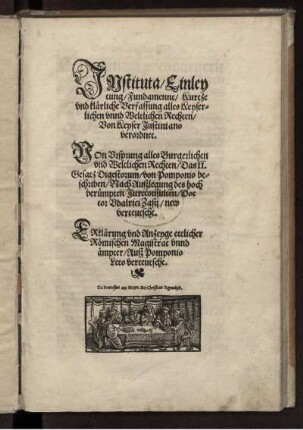 INstituta/Einley
tung/Fundament/Kurtze
vnd klärliche Verfassung alles Keyser-
lichen vnnd Weltlichen Rechten/
Von Keyser Justiniano
verordnet.
VOn Vrsprung alles Burgerlichen
vnd Weltlichen Rechten/Das II.
Gesatz Digestorum/von Pomponio be-
schriben/Nach Außlegung des hoch
berümpten Jureconsulten/Doc
tor Vdalrici Zasij/new
verteutscht.
ERklärung vnd Anzeyge etlicher
Römischen Magistrat vnnd
ämpter/Auß Pomponio
Leto verteutscht.
Zu Franckfurt am Meyn/Bei Christian Egenolph.